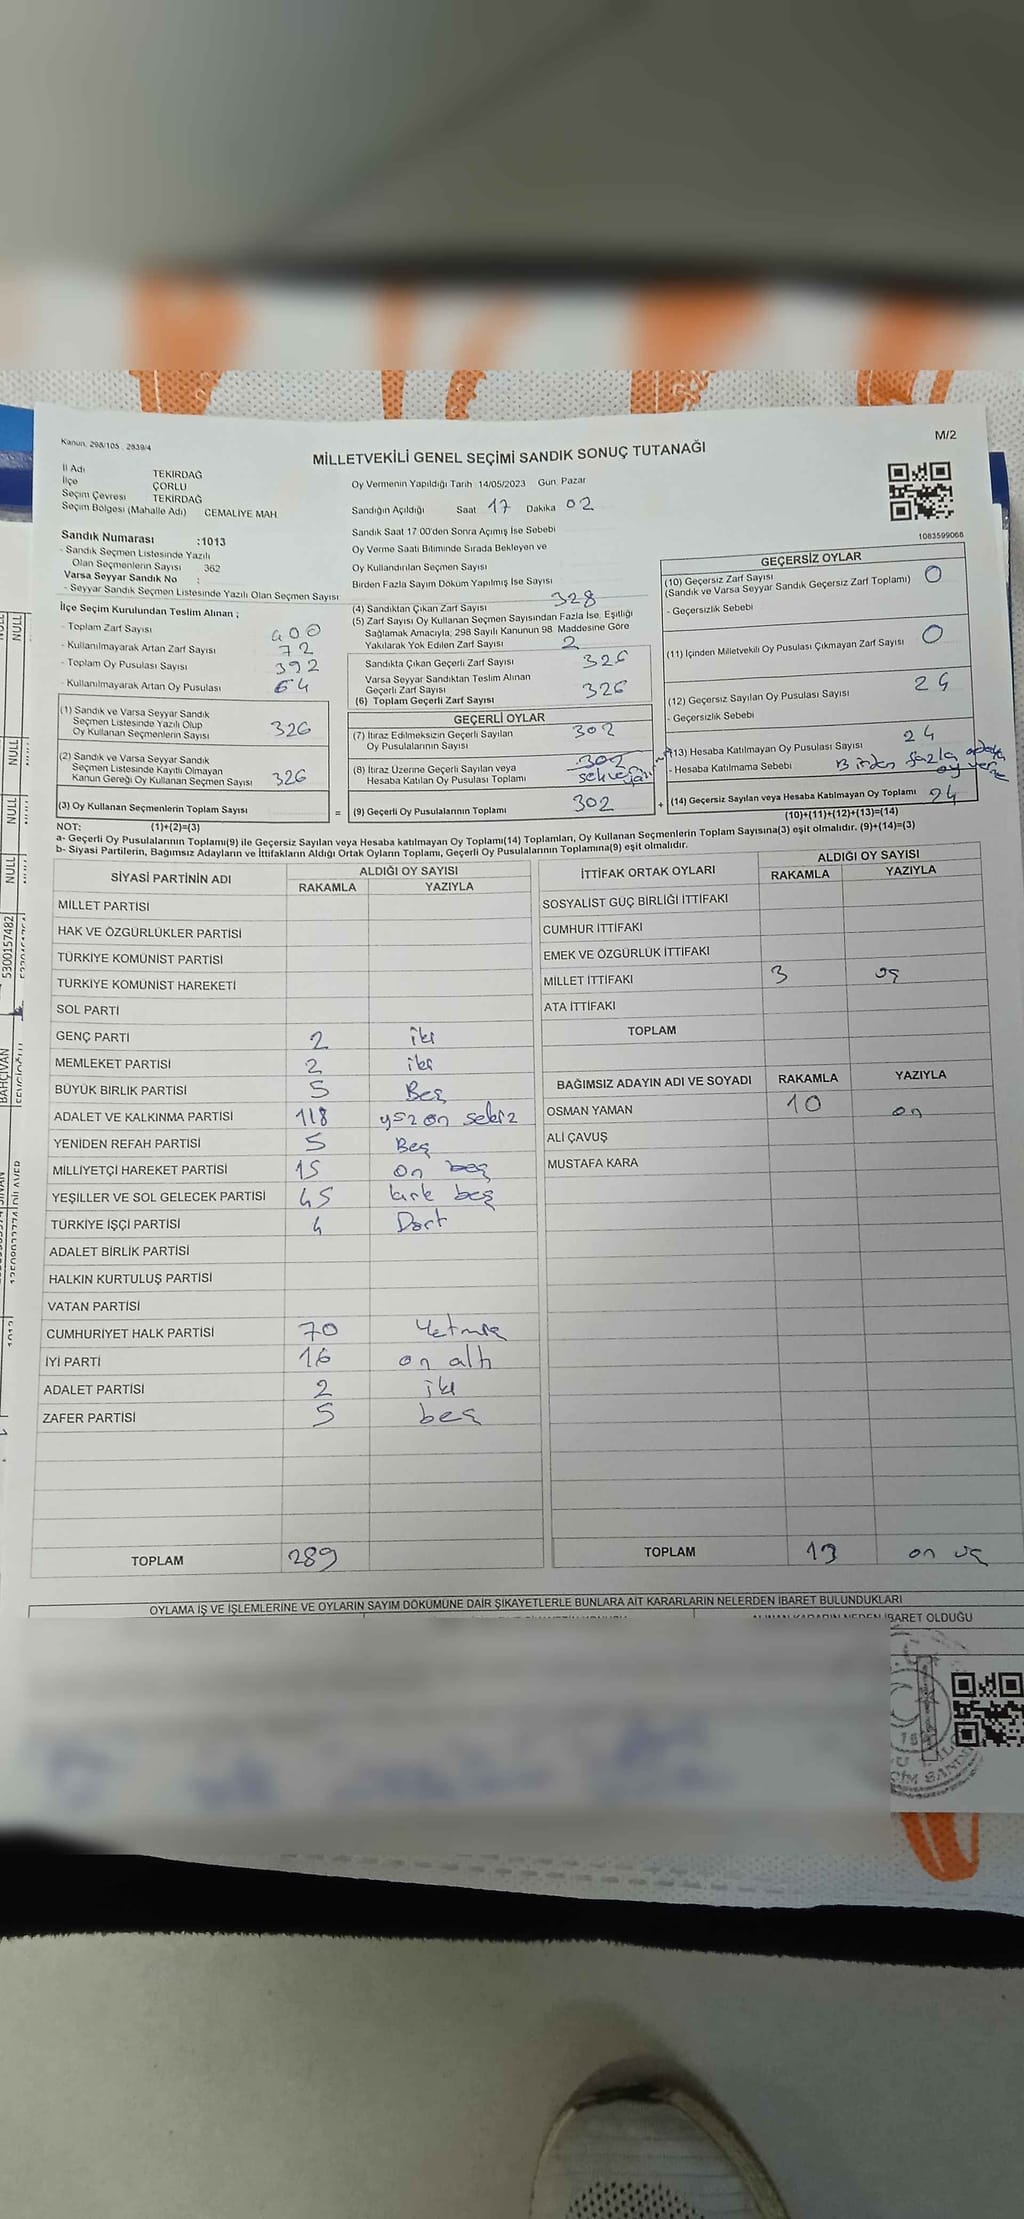 Kanun, 298/105 , 2839/4
M/2
MİLLETVEKİLİ GENEL SEÇİMİ SANDIK SONUÇ TUTANAĞI
İl Adı TEKİRDAĞ
İlçe ÇORLU
Seçim Çevresi TEKİRDAĞ
Seçim Bölgesi (Mahalle Adı) CEMALİYE MAH
Oy Vermenin Yapıldığı Tarih 14/05/2023 Gün Pazar
Sandığın Açıldığı Saat 17 Dakika 02
Sandık Saat 17 00'den Sonra Açımış İse Sebebi
Oy Verme Saati Bitiminde Sırada Bekleyen ve
Oy Kullandırılan Seçmen Sayısı
Birden Fazla Sayım Döküm Yapılmış İse Sayısı
1083599066
Sandık Numarası :1013
- Sandık Seçmen Listesinde Yazılı
Olan Seçmenlerin Sayısı 362
Varsa Seyyar Sandık No :
- Seyyar Sandık Seçmen Listesinde Yazılı Olan Seçmen Sayısı
İlçe Seçim Kurulundan Teslim Alınan ;
- Toplam Zarf Sayısı 400
- Kullanılmayarak Artan Zarf Sayısı 72
- Toplam Oy Pusulası Sayısı 392
- Kullanılmayarak Artan Oy Pusulası 64
(1) Sandık ve Varsa Seyyar Sandık
Seçmen Listesinde Yazılı Olup
Oy Kullanan Seçmenlerin Sayısı 326
(2) Sandık ve Varsa Seyyar Sandık
Seçmen Listesinde Kayıtlı Olmayan
Kanun Gereği Oy Kullanan Seçmen Sayısı 326
(3) Oy Kullanan Seçmenlerin Toplam Sayısı =
(1)+(2)=(3)
(4) Sandıktan Çıkan Zarf Sayısı 328
(5) Zarf Sayısı Oy Kullanan Seçmen Sayısından Fazla İse, Eşitliği
Sağlamak Amacıyla, 298 Sayılı Kanunun 98. Maddesine Göre
Yakılarak Yok Edilen Zarf Sayısı 2
Sandıkta Çıkan Geçerli Zarf Sayısı 326
Varsa Seyyar Sandıktan Teslim Alınan
Geçerli Zarf Sayısı
(6) Toplam Geçerli Zarf Sayısı 326
GEÇERLİ OYLAR
(7) İtiraz Edilmeksizin Geçerli Sayılan
Oy Pusulalarının Sayısı 302
(8) İtiraz Üzerine Geçerli Sayılan veya
Hesaba Katılan Oy Pusulası Toplamı 302
(9) Geçerli Oy Pusulalarının Toplamı 302 +
GEÇERSİZ OYLAR
(10) Geçersiz Zarf Sayısı
(Sandık ve Varsa Seyyar Sandık Geçersiz Zarf Toplamı) 0
- Geçersizlik Sebebi
(11) İçinden Milletvekili Oy Pusulası Çıkmayan Zarf Sayısı 0
(12) Geçersiz Sayılan Oy Pusulası Sayısı 24
- Geçersizlik Sebebi
(13) Hesaba Katılmayan Oy Pusulası Sayısı 24
- Hesaba Katılmama Sebebi Birden fazla oy verme
(14) Geçersiz Sayılan veya Hesaba Katılmayan Oy Toplamı 24
(10)+(11)+(12)+(13)=(14)
NOT:
a- Geçerli Oy Pusulalarının Toplamı(9) ile Geçersiz Sayılan veya Hesaba katılmayan Oy Toplamı(14) Toplamları, Oy Kullanan Seçmenlerin Toplam Sayısına(3) eşit olmalıdır. (9)+(14)=(3)
b- Siyasi Partilerin, Bağımsız Adayların ve İttifakların Aldığı Ortak Oyların Toplamı, Geçerli Oy Pusulalarının Toplamına(9) eşit olmalıdır.
SİYASİ PARTİNİN ADI ALDIĞI OY SAYISI
RAKAMLA YAZIYLA
MİLLET PARTİSİ
HAK VE ÖZGÜRLÜKLER PARTİSİ
TÜRKİYE KOMÜNİST PARTİSİ
TÜRKİYE KOMÜNİST HAREKETİ
SOL PARTİ
GENÇ PARTİ 2 iki
MEMLEKET PARTİSİ 2 iki
BÜYÜK BİRLİK PARTİSİ 5 Beş
ADALET VE KALKINMA PARTİSİ 118 yüz on sekiz
YENİDEN REFAH PARTİSİ 5 Beş
MİLLİYETÇİ HAREKET PARTİSİ 15 on beş
YEŞİLLER VE SOL GELECEK PARTİSİ 45 kırk beş
TÜRKİYE İŞÇİ PARTİSİ 4 Dört
ADALET BİRLİK PARTİSİ
HALKIN KURTULUŞ PARTİSİ
VATAN PARTİSİ
CUMHURİYET HALK PARTİSİ 70 Yetmiş
İYİ PARTİ 16 on altı
ADALET PARTİSİ 2 iki
ZAFER PARTİSİ 5 beş
TOPLAM 289
İTTİFAK ORTAK OYLARI ALDIĞI OY SAYISI
RAKAMLA YAZIYLA
SOSYALİST GÜÇ BİRLİĞİ İTTİFAKI
CUMHUR İTTİFAKI
EMEK VE ÖZGÜRLÜK İTTİFAKI
MİLLET İTTİFAKI 3 üç
ATA İTTİFAKI
TOPLAM
BAĞIMSIZ ADAYIN ADI VE SOYADI RAKAMLA YAZIYLA
OSMAN YAMAN 10 on
ALİ ÇAVUŞ
MUSTAFA KARA
TOPLAM 13 on üç
OYLAMA İŞ VE İŞLEMLERİNE VE OYLARIN SAYIM DÖKÜMÜNE DAİR ŞİKAYETLERLE BUNLARA AİT KARARLARIN NELERDEN İBARET BULUNDUKLARI
ALINAN KARARIN NEDEN İBARET OLDUĞU
NULL
NULL
NULL
NULL
5300157482
BAHÇIVAN